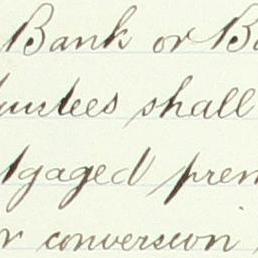 Bank or Ba
rustees shall
tgaged prem
r conversion